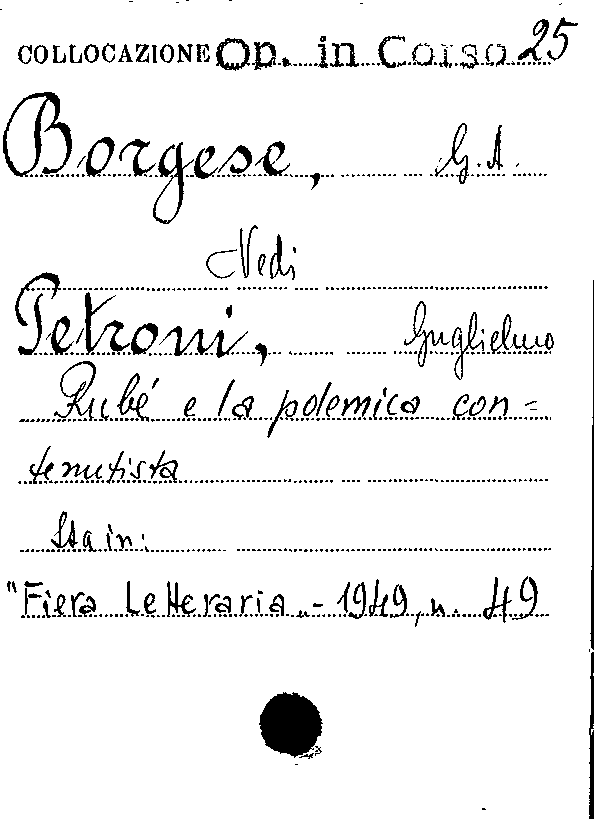 COLLOCAZIONE Op. in Corso 25
Borgese, G. A.
Vedi
Petroni, Guglielmo
Rubé e la polemica con=
tenutista
Sta in:
"Fiera Letteraria„ - 1949, n. 49